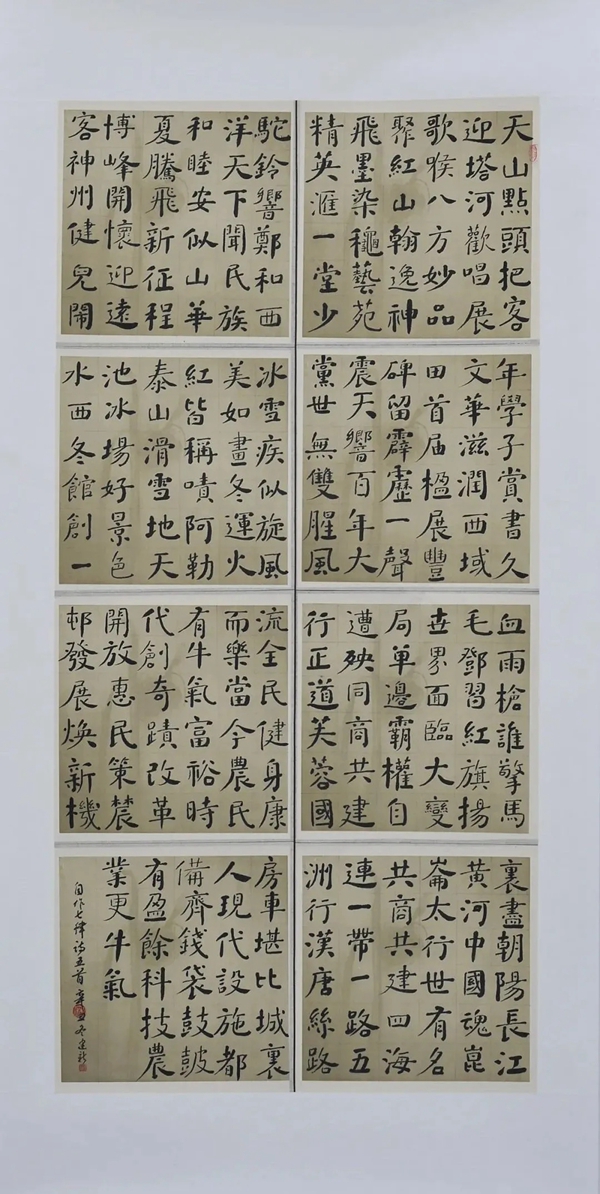 天山點頭把客
迎塔河歡唱展
歌喉八方妙品
聚紅山翰逸神
飛墨染龝藝苑
精英滙一堂少
年學子賞書久
文華滋潤西域
田首届楹展豐
碑留霹靂一聲
震天響百年大
黨世無雙腥風
血雨槍誰擎馬
毛鄧習紅旗揚
世界面臨大變
局單邊霸權自
遭殃同商共建
行正道芙蓉國
裏盡朝陽長江
黄河中國魂崑
崙太行世有名
共商共建四海
連一帶一路五
洲行漢唐絲路
駝鈴響鄭和西
洋天下聞民族
和睦安似山華
夏騰飛新征程
博峰開懷迎遠
客神州健兒鬧
冰雪疾似旋風
美如畫冬運火
紅皆稱嘖阿勒
泰山滑雪地天
池冰場好景色
水西冬館創一
流全民健身康
而樂當今農民
有牛氣富裕時
代創奇蹟改革
開放惠民策農
邨發展煥新機
房車堪比城裏
人現代設施都
備齊錢袋鼓皷
有盈餘科技農
業更牛氣
自作七律詩五首辛丑冬建新